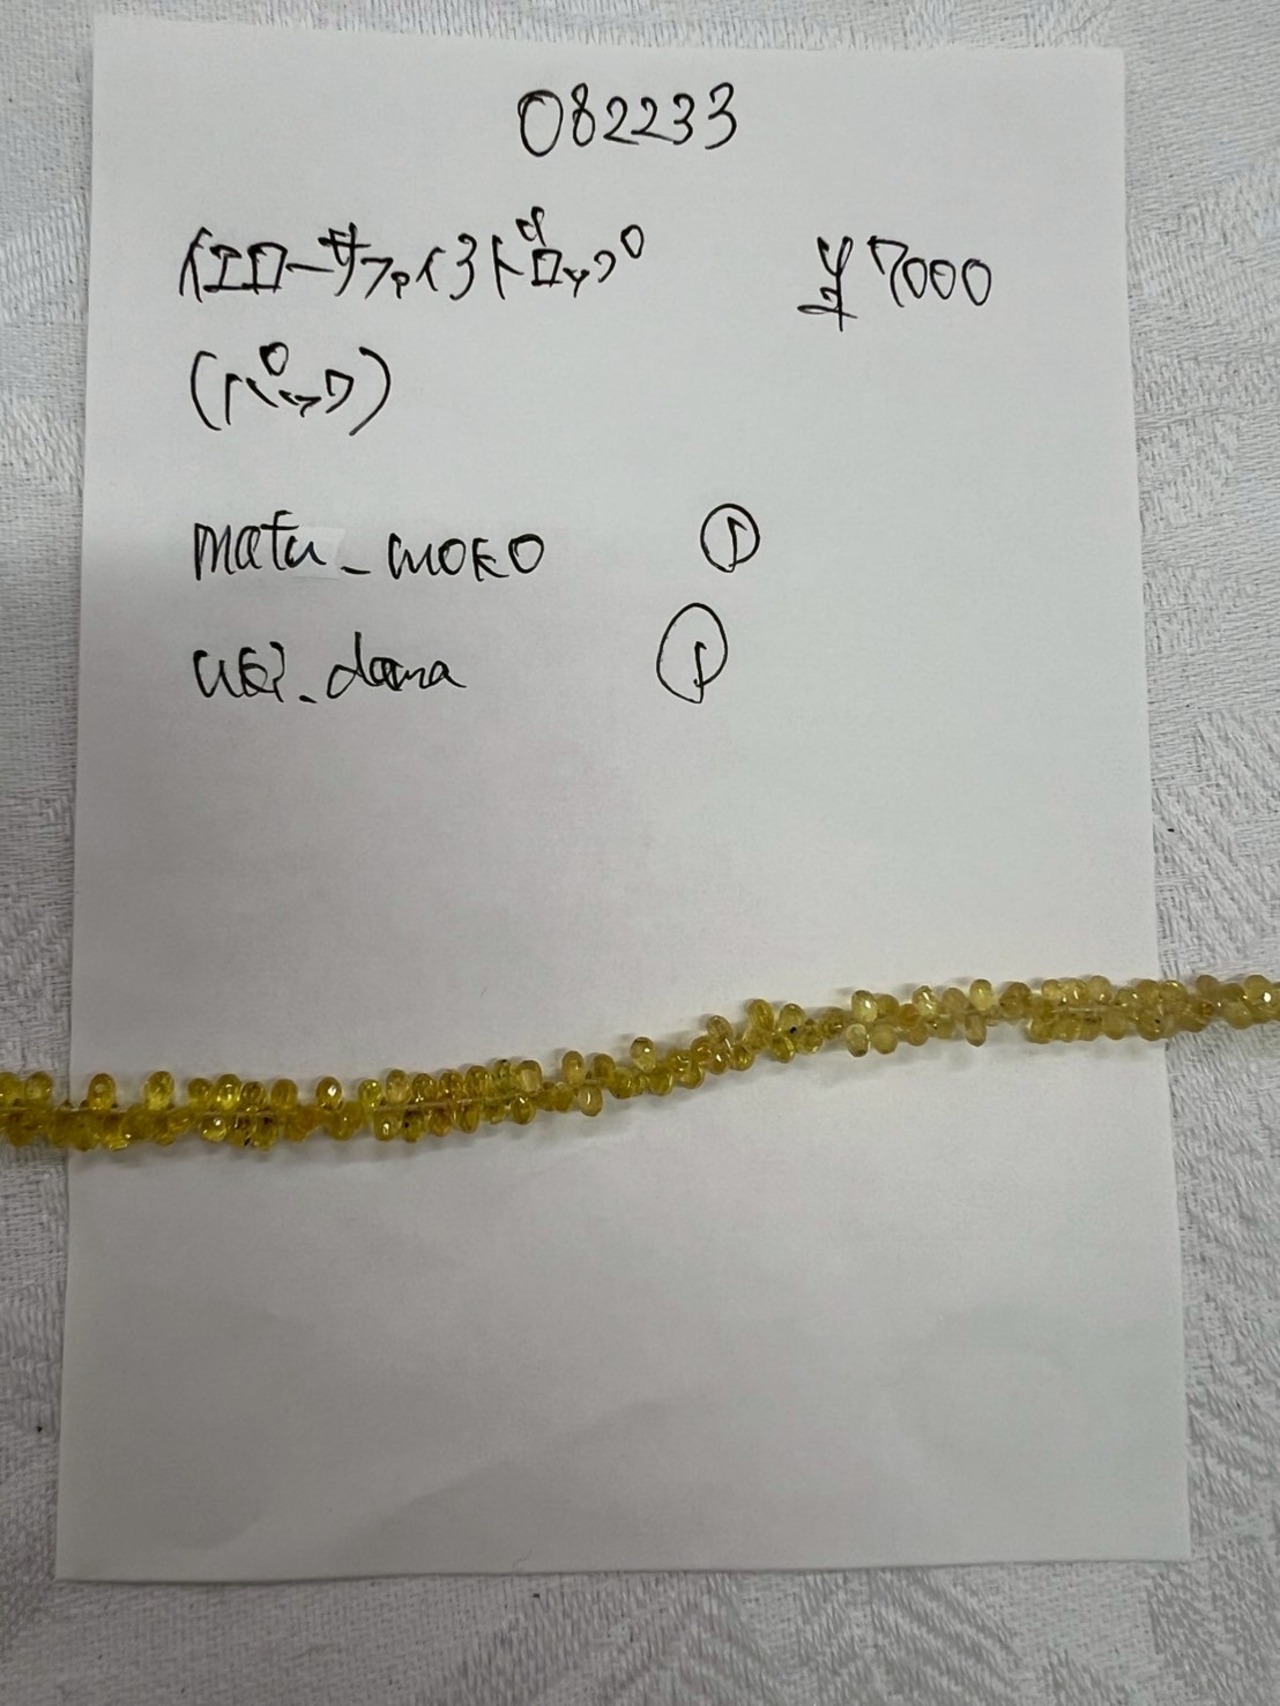 082233
イエローサファイヤドロップ ¥7000
(パック)
matu_moko ①
uki_dama ①